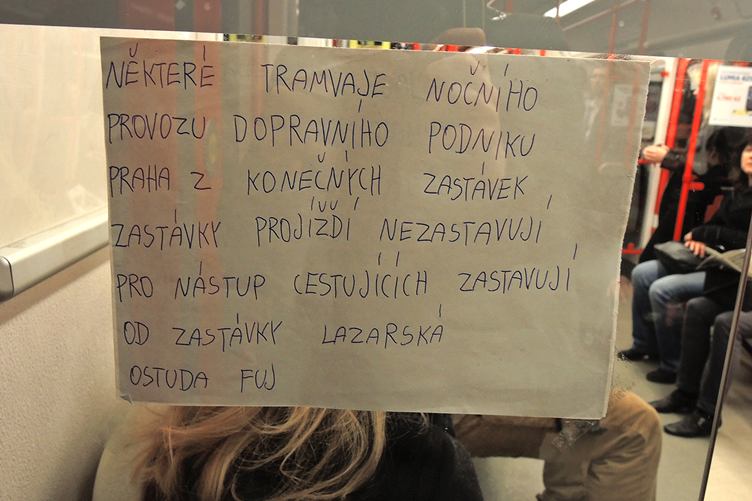 NĚKTERÉ TRAMVAJE NOČNÍHO
PROVOZU DOPRAVNÍHO PODNIKU
PRAHA Z KONEČNÝCH ZASTÁVEK
ZASTÁVKY PROJÍŽDÍ NEZASTAVUJÍ
PRO NÁSTUP CESTUJÍCÍCH ZASTAVUJÍ
OD ZASTÁVKY LAZARSKÁ
OSTUDA FUJ